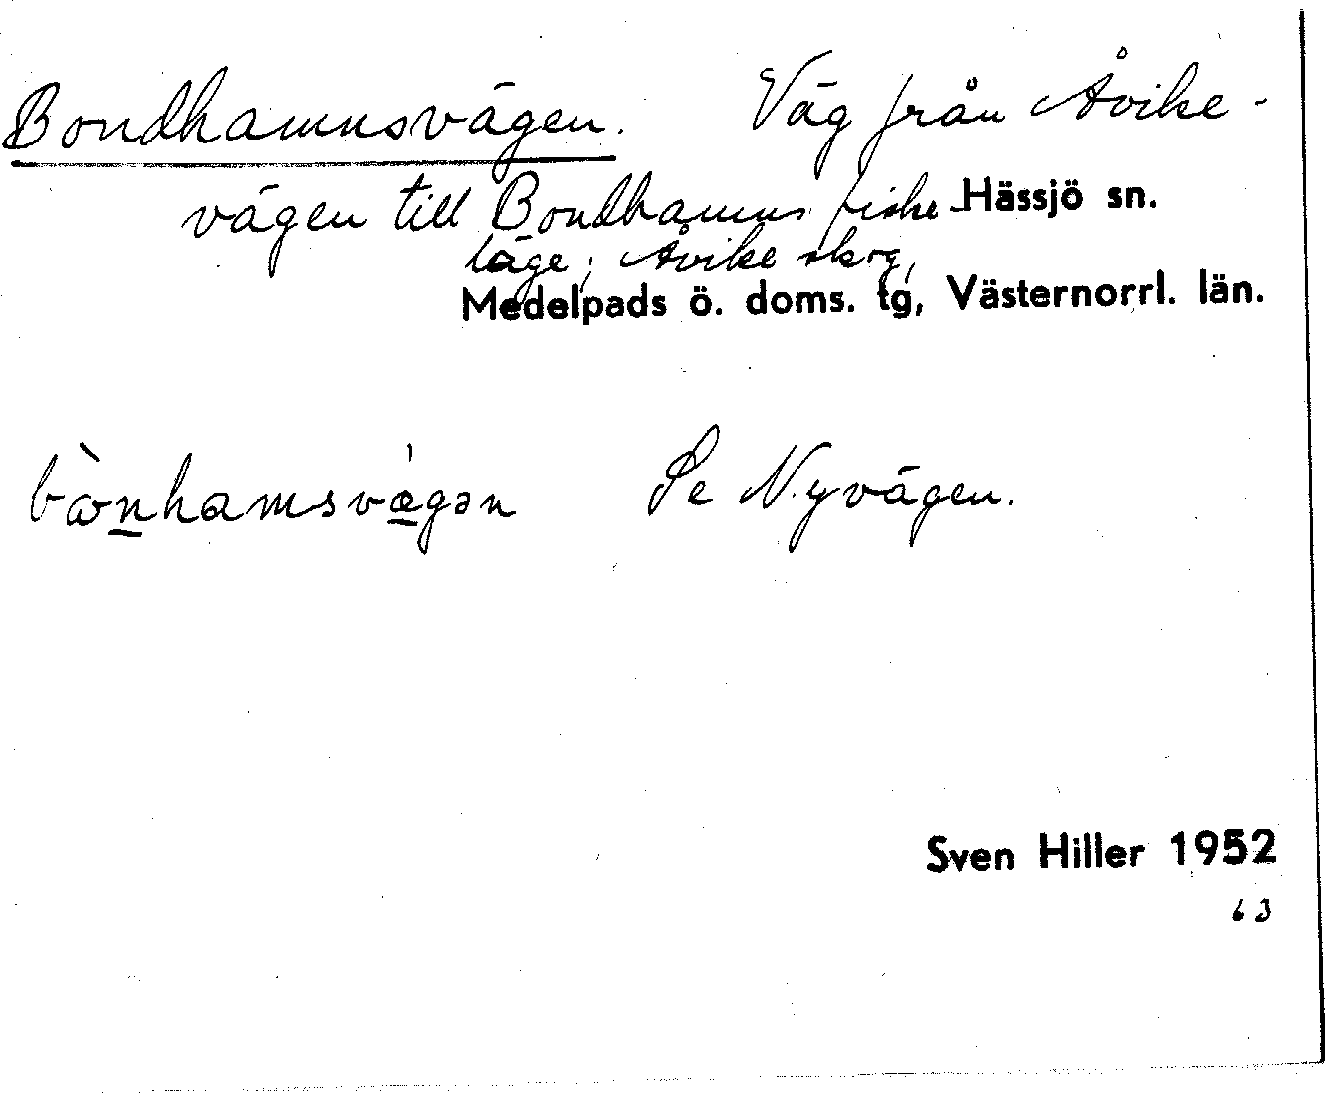 Bondhamnsvägen. Väg från Åvike-
vägen till Bondhamns fiske-
Hässjö sn.
läge, Åvike skog,
Medelpads ö. doms. tg, Västernorrl. län.
Se Nyvägen.
Sven Hiller 1952
63